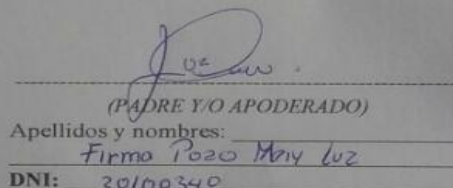 (PADRE Y/O APODERADO)
Apellidos y nombres:
Firma Pozo Mary Luz
DNI: 20100340